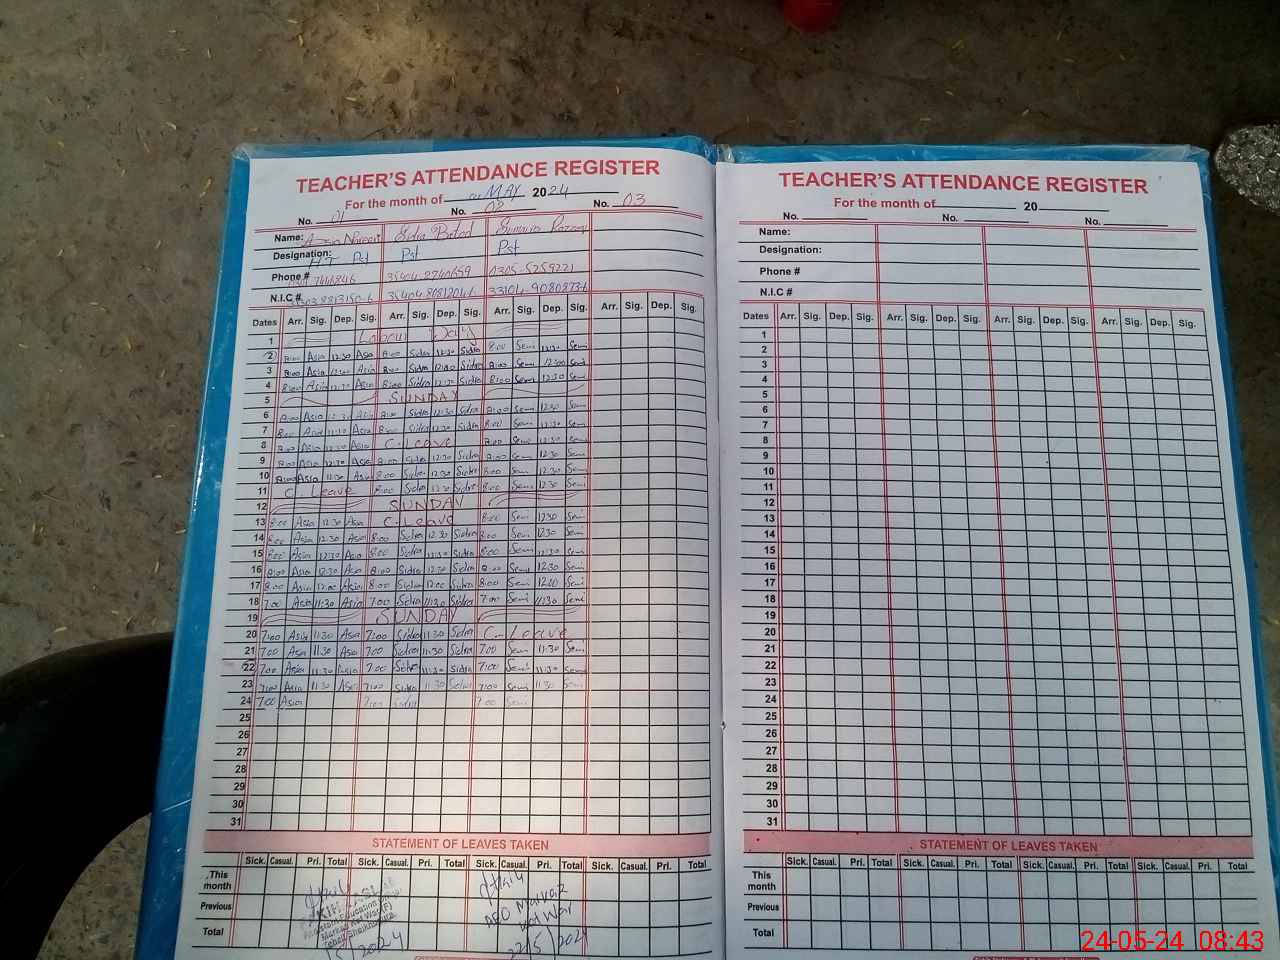 TEACHER'S ATTENDANCE REGISTER
For the month of MAY 2024
No. 01 No. 02 No. 03
Name:
Designation: H.T Pst Pst Pst
Phone # 0305-5259221
N.I.C #
Dates Arr. Sig. Dep. Sig. Arr. Sig. Dep. Sig. Arr. Sig. Dep. Sig. Arr. Sig. Dep. Sig.
1 Labour Day
2 8:00 Asia 12:30 Asia 8:00 Sidra 12:30 Sidra 8:00 Semi 12:30 Semi
3 8:00 Asia 12:30 Asia 8:00 Sidra Sidra 8:00 Semi Semi
4 8:00 Asia 12:30 Asia 8:00 Sidra 12:30 Sidra 8:00 Semi 12:30 Semi
5 SUNDAY
6 8:00 Asia 12:30 Asia 8:00 Sidra 12:30 Sidra 8:00 Semi 12:30 Semi
7 8:00 Asia Asia 8:00 Sidra 12:30 Sidra 8:00 Semi 12:30 Semi
8 8:00 Asia 12:30 Asia C.Leave 8:00 Semi 12:30 Semi
9 8:00 Asia 12:30 Asia 8:00 Sidra 12:30 Sidra 8:00 Semi 12:30 Semi
10 8:00 Asia 12:30 Asia 8:00 Sidra 12:30 Sidra 8:00 Semi 12:30 Semi
11 C.Leave 8:00 Sidra 12:30 Sidra 8:00 Semi 12:30 Semi
12 SUNDAY
13 8:00 Asia 12:30 Asia C.Leave 8:00 Semi 1230 Semi
14 8:00 Asia 12:30 Asia 8:00 Sidra 12:30 Sidra 8:00 Semi 12:30 Semi
15 8:00 Asia 12:30 Asia 8:00 Sidra 12:30 Sidra 8:00 Semi 12:30 Semi
16 8:00 Asia 12:30 Asia 8:00 Sidra 12:30 Sidra 8:00 Semi 12:30 Semi
17 8:00 Asia 12:00 Asia 8:00 Sidra 12:00 Sidra 8:00 Semi 12:00 Semi
18 7:00 Asia 11:30 Asia 7:00 Sidra 11:30 Sidra 7:00 Semi 11:30 Semi
19 SUNDAY
20 7:00 Asia 11:30 Asia 7:00 Sidra 11:30 Sidra C.Leave
21 7:00 Asia 11:30 Asia 7:00 Sidra 11:30 Sidra 7:00 Semi 11:30 Semi
22 7:00 Asia 11:30 Asia 7:00 Sidra 11:30 Sidra 7:00 Semi 11:30 Semi
23 7:00 Asia 11:30 Asia 7:00 Sidra 11:30 Sidra 7:00 Semi 11:30 Semi
24 7:00 Asia 7:00 Sidra 7:00 Semi
25
26
27
28
29
30
31
STATEMENT OF LEAVES TAKEN
Sick. Casual. Pri. Total Sick. Casual. Pri. Total Sick. Casual. Pri. Total Sick. Casual. Pri. Total
This month
Previous
Total
Assistant Education
Markaz Kot War (F)
2024
AEO Markaz
Kot War
22/5/2024
TEACHER'S ATTENDANCE REGISTER
For the month of 20
No. No. No.
Name:
Designation:
Phone #
N.I.C #
Dates Arr. Sig. Dep. Sig. Arr. Sig. Dep. Sig. Arr. Sig. Dep. Sig. Arr. Sig. Dep. Sig.
1
2
3
4
5
6
7
8
9
10
11
12
13
14
15
16
17
18
19
20
21
22
23
24
25
26
27
28
29
30
31
STATEMENT OF LEAVES TAKEN
Sick. Casual. Pri. Total Sick. Casual. Pri. Total Sick. Casual. Pri. Total Sick. Casual. Pri. Total
This month
Previous
Total
24-05-24 08:43